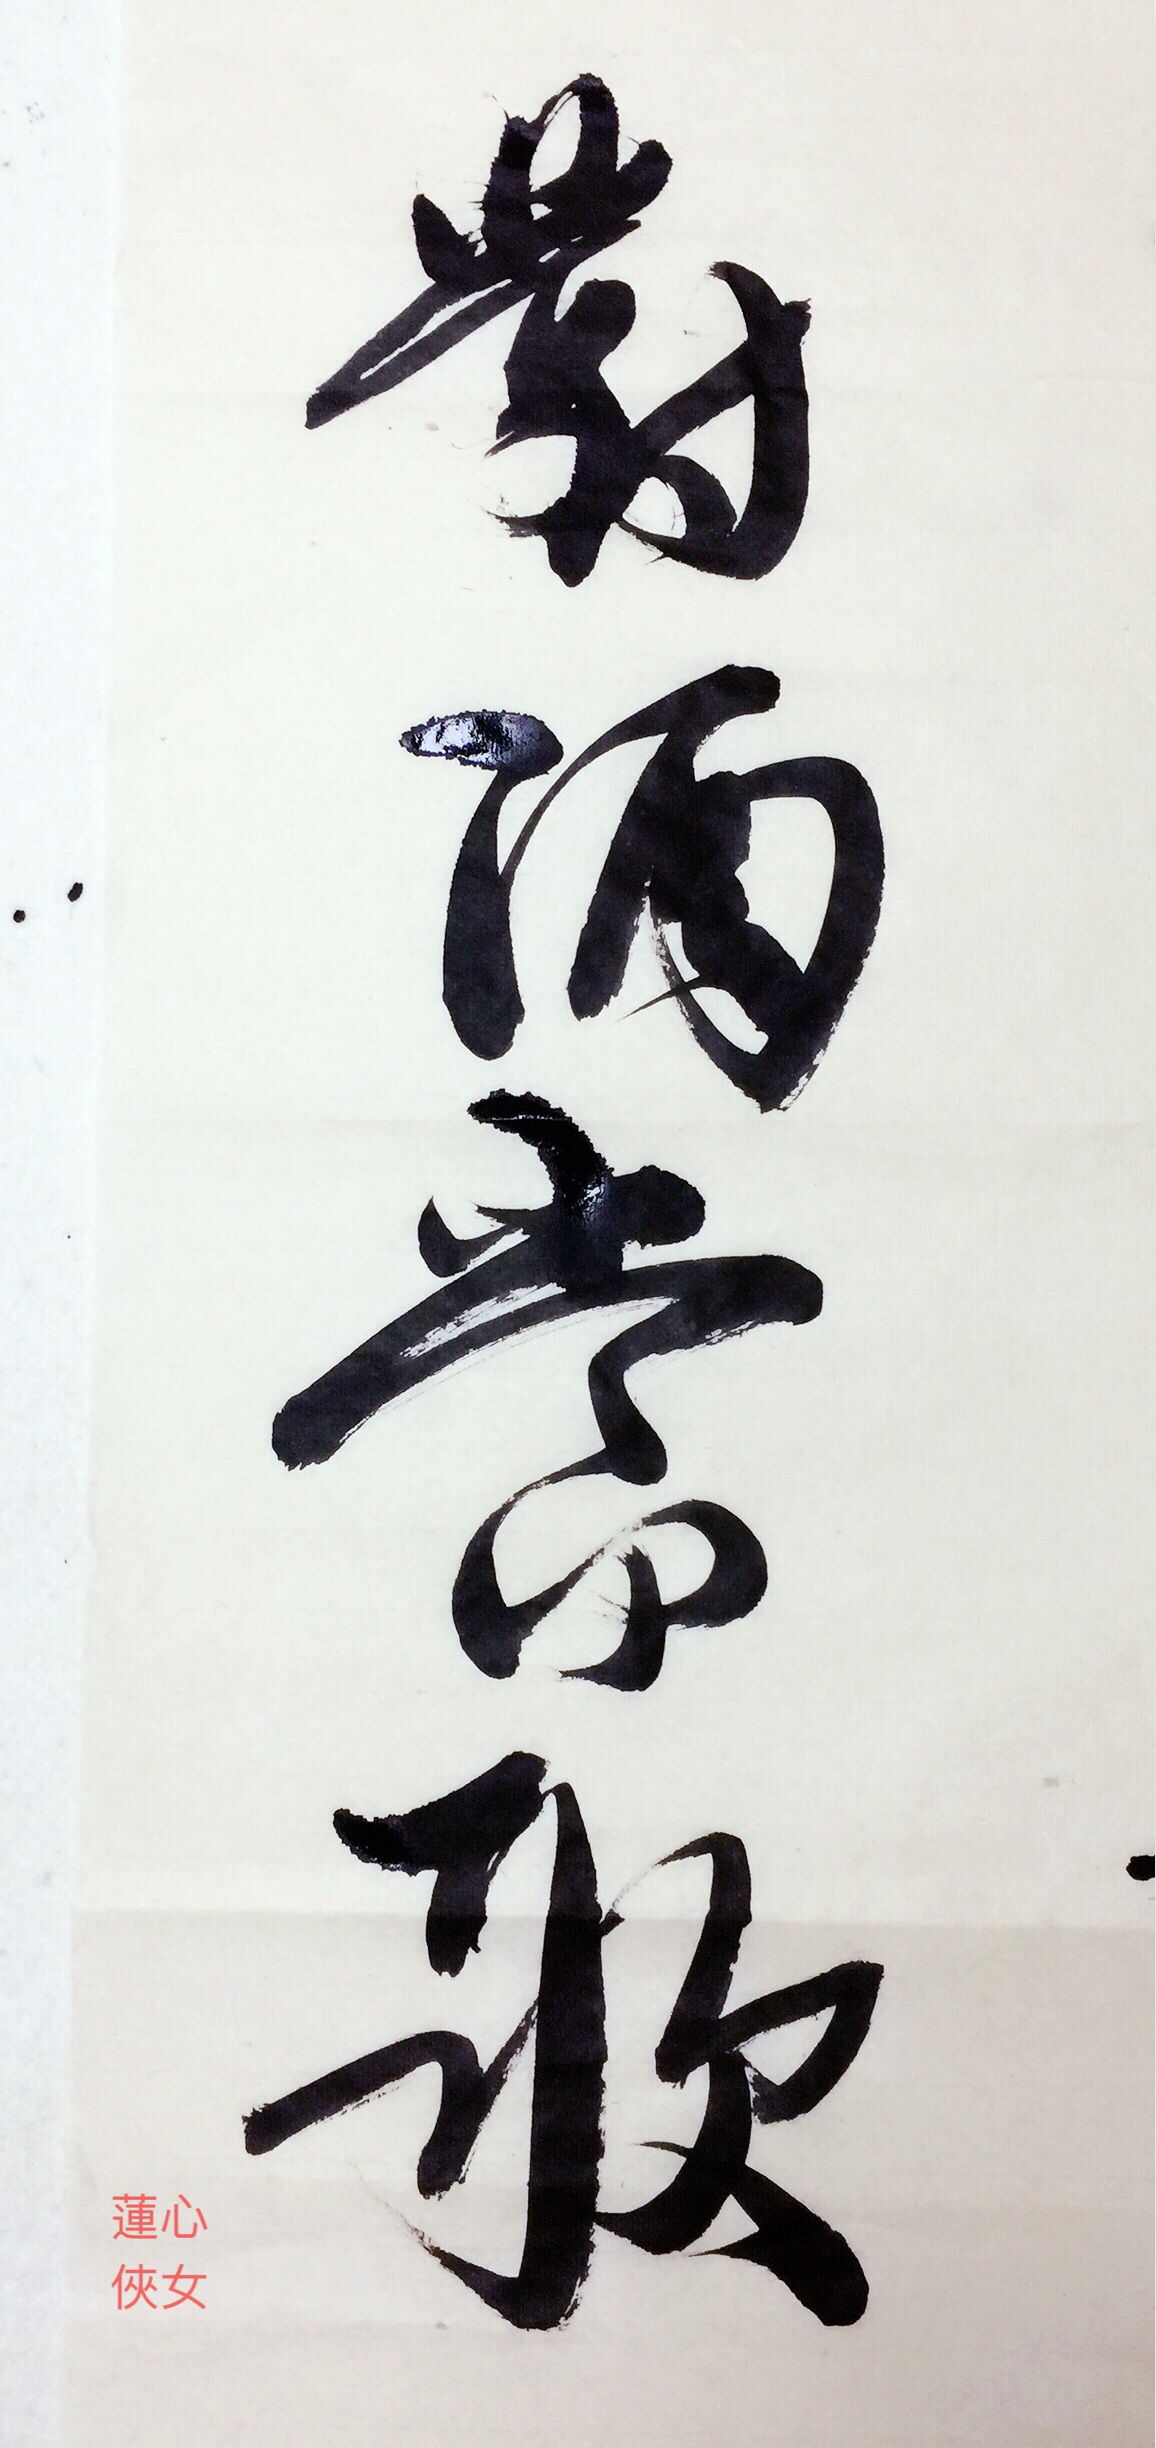 對酒當歌
蓮心
俠女